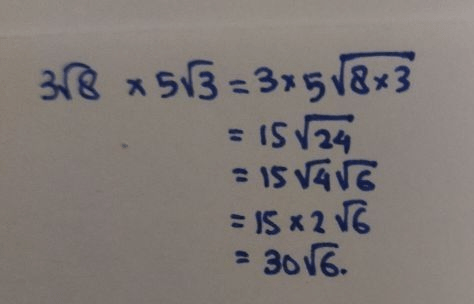 3√8 × 5√3 = 3×5√(8×3)
= 15√24
= 15√4√6
= 15 × 2√6
= 30√6.